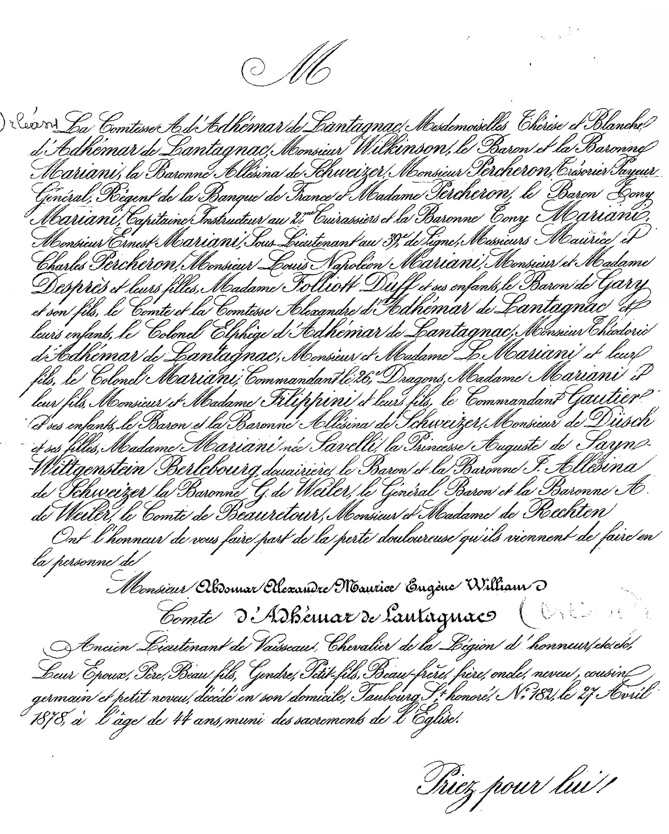 M
La Comtesse A. d'Adhémar de Lantagnac, Mesdemoiselles Thérèse et Blanche
d'Adhémar de Lantagnac, Monsieur Wilkinson, le Baron et la Baronne
Mariani, la Baronne Allésina de Schweizer, Monsieur Percheron, Trésorier Payeur
Général, Régent de la Banque de France et Madame Percheron, le Baron Tony
Mariani, Capitaine Instructeur au 2me Cuirassiers et la Baronne Tony Mariani,
Monsieur Ernest Mariani, Sous Lieutenant au 39e de Ligne, Messieurs Maurice et
Charles Percheron, Monsieur Louis Napoléon Mariani, Monsieur et Madame
Desprès et leurs filles, Madame Folliott Duff et ses enfants, le Baron de Gary
et son fils, le Comte et la Comtesse Alexandre d'Adhémar de Lantagnac et
leurs enfants, le Colonel Elphège d'Adhémar de Lantagnac, Monsieur Théodoric
d'Adhémar de Lantagnac, Monsieur et Madame L. Mariani et leur
fils, le Colonel Mariani, Commandant le 26e Dragons, Madame Mariani et
leur fils, Monsieur et Madame Filippini et leurs fils, le Commandant Gautier
et ses enfants, le Baron et la Baronne Allésina de Schweizer, Monsieur de Düsch
et ses filles, Madame Mariani née Savelli, la Princesse Auguste de Sayn
Wittgenstein Berlebourg douairière, le Baron et la Baronne F. Allésina
de Schweizer la Baronne G. de Weiler, le Général Baron et la Baronne A.
de Weiler, le Comte de Beauretour, Monsieur et Madame de Rechten
Ont l'honneur de vous faire part de la perte douloureuse qu'ils viennent de faire en
la personne de
Monsieur Abdomar Alexandre Maurice Eugène William
Comte d'Adhémar de Lantagnac
Ancien Lieutenant de Vaisseau, Chevalier de la Légion d'honneur, etc. etc.
Leur Epoux, Père, Beau fils, Gendre, Petit-fils, Beau-frère, frère, oncle, neveu, cousin
germain et petit neveu, décédé en son domicile, Faubourg St honoré, No 182, le 27 Avril
1878, à l'âge de 44 ans, muni des sacrements de l'Eglise.
Priez pour lui!